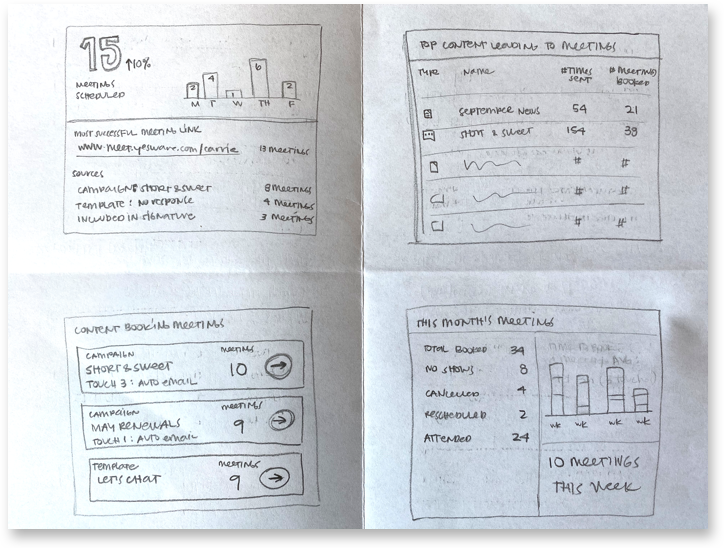 15 ↑10%
MEETINGS
SCHEDULED
2 4 1 6 2
M T W TH F
MOST SUCCESSFUL MEETING LINK
www.meet.yesware.com/carrie 13 MEETINGS
SOURCES
CAMPAIGN: SHORT & SWEET 8 MEETINGS
TEMPLATE: NO RESPONSE 4 MEETINGS
INCLUDED IN SIGNATURE 3 MEETINGS
TOP CONTENT LEADING TO MEETINGS
TYPE NAME #TIMES SENT # MEETINGS BOOKED
SEPTEMBER NEWS 54 21
SHORT & SWEET 154 39
# #
# #
# #
CONTENT BOOKING MEETINGS
CAMPAIGN MEETINGS
SHORT & SWEET 10
TOUCH 3: AUTO EMAIL
CAMPAIGN MEETINGS
MAY RENEWALS 9
TOUCH 1: AUTO EMAIL
TEMPLATE MEETINGS
LET'S CHAT 9
THIS MONTH'S MEETINGS
TOTAL BOOKED 34
NO SHOWS 8
CANCELLED 4
RESCHEDULED 2
ATTENDED 24
WK WK WK WK
10 MEETINGS
THIS WEEK